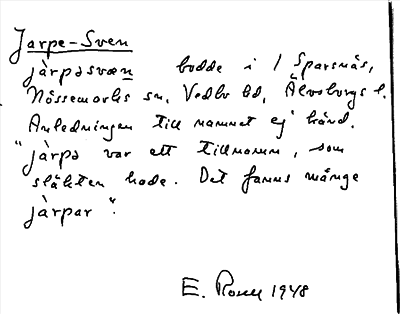 Jarpe-Sven
jàrpəsvæn bodde i / Sparsnäs,
Nössemarks sn, Vedbo hd, Älvsborgs l.
Anledningen till namnet ej känd.
"jàrpə var ett tillnamn, som
släkten hade. Det fanns många
jàrpar".
E. 1948